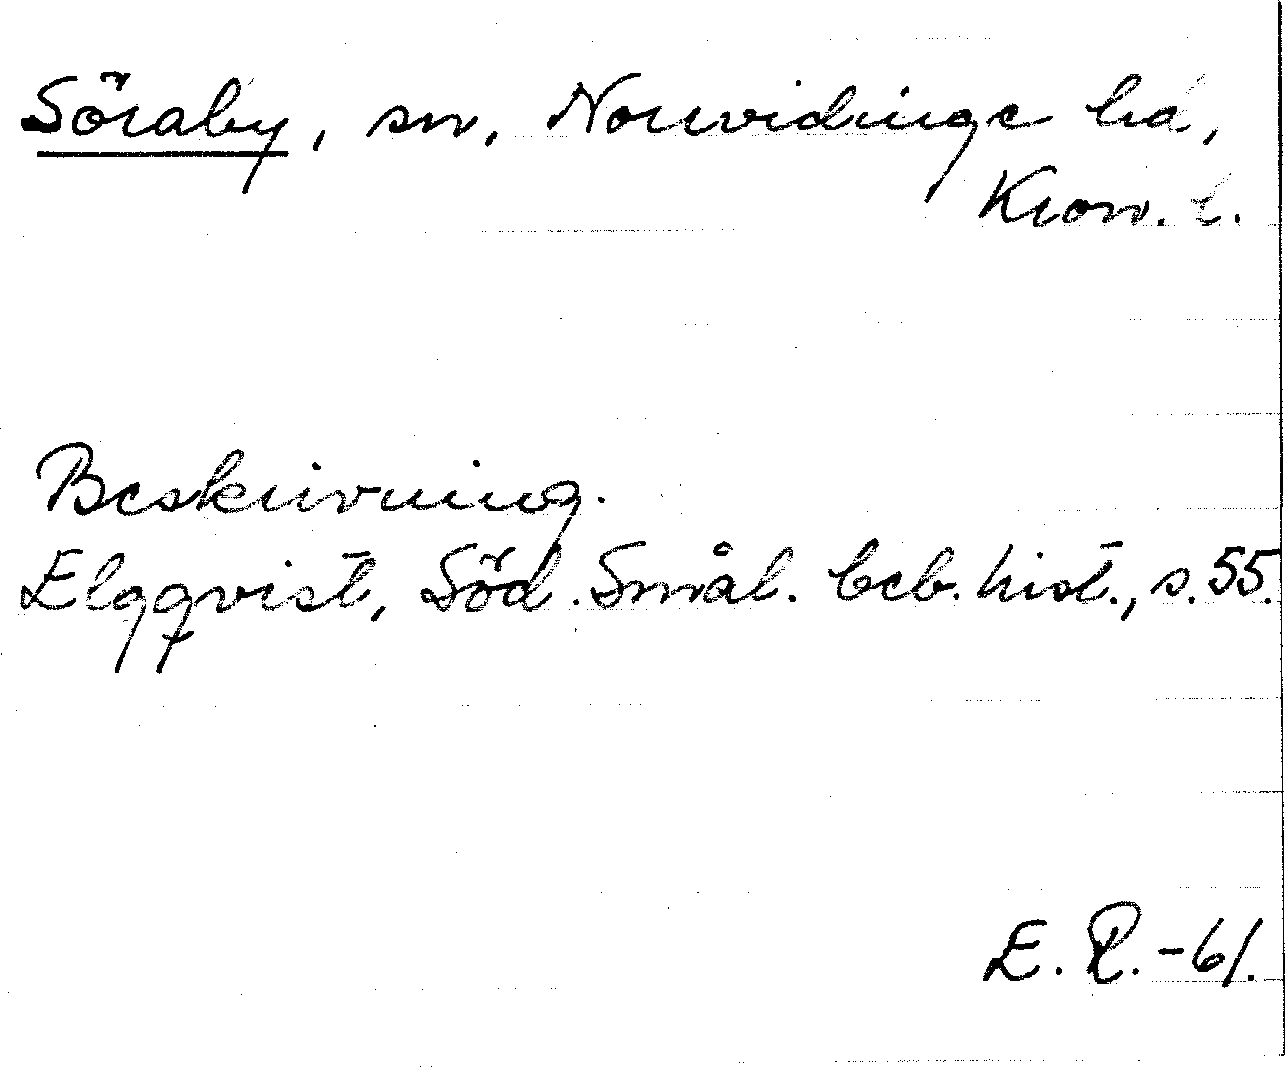 Söraby, sn, Norrvidinge hd,
Kron. l.
Beskrivning.
Elgqvist, Söd. Smål. beb. hist., s. 55.
E. R. -61.